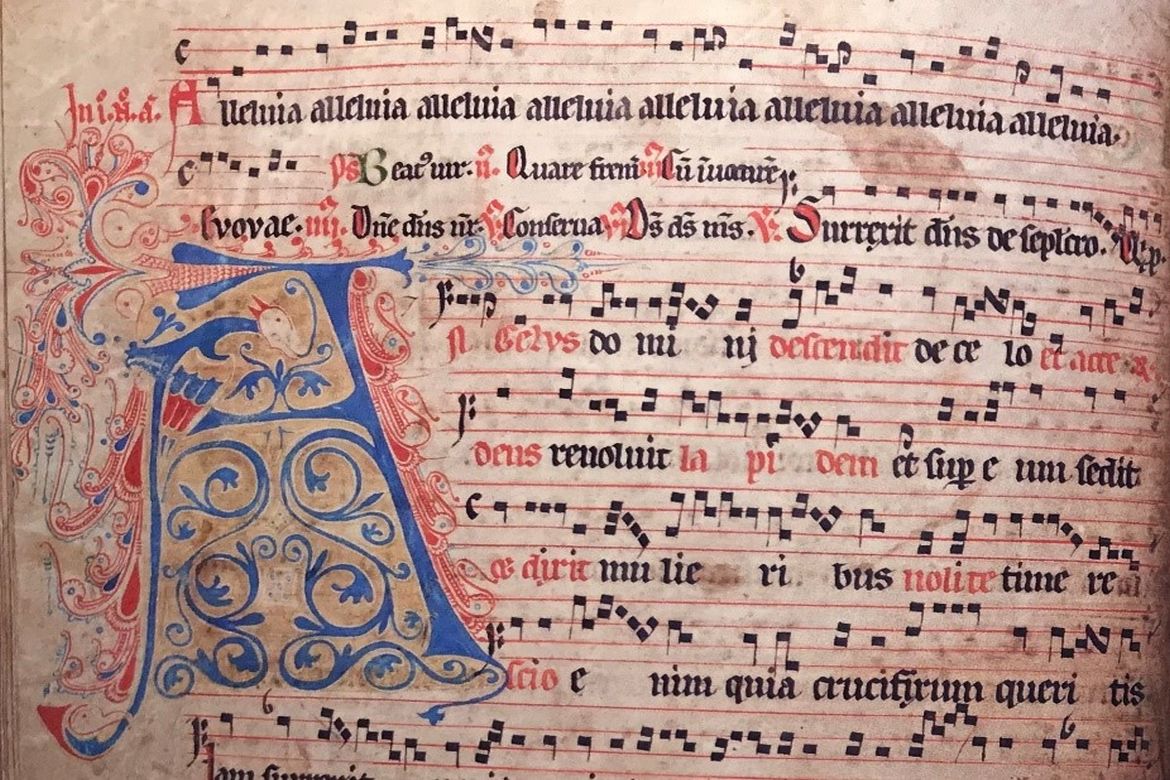 In i. n̄. a͞. Alleluia alleluia alleluia alleluia alleluia alleluia alleluia alleluia.
ps Beat9 uir. ii. Quare frem̄ iii. Cū īuocarē
Evovae. iiii. Dn̄e dn̄s nr̄. v. Conserua. vi. Ds̄ ds̄ ms̄. V. Surrexit dn̄s deseplcro.
Angelus do mi ni descendit de ce lo et acce
dens reuoluit la pi dem et sup e um sedit
et dixit mu lie ri bus nolite time re
scio e nim quia crucifixum queri tis
iam surrexit